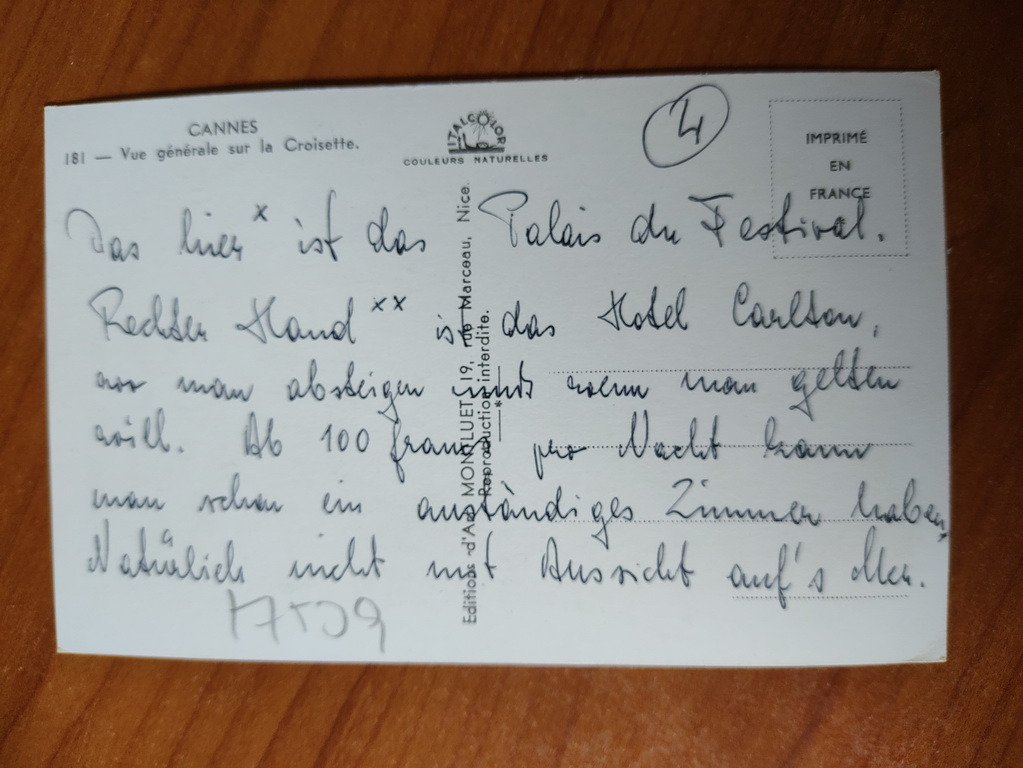 CANNES
181 — Vue générale sur la Croisette.
ITALCOLOR
COULEURS NATURELLES
4
IMPRIMÉ
EN
FRANCE
Das hier x ist das Palais du Festival.
Rechter Hand xx ist das Hotel Carlton,
wo man absteigen muß wenn man gelten
will. Ab 100 francs pro Nacht kann
man schon ein anständiges Zimmer haben,
Natürlich nicht mit Aussicht auf's Mer.
Editions d'Art MONTLUET, 19, rue Marceau, Nice.
Reproduction interdite.